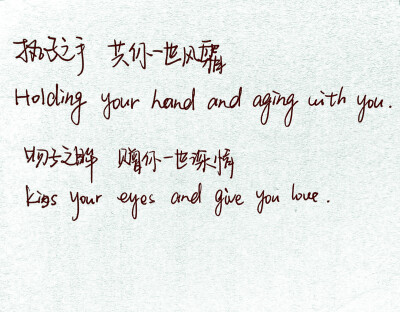 执子之手 共你一世风霜
Holding your hand and aging with you.
吻子之眸 赠你一世深情
kiss your eyes and give you love.